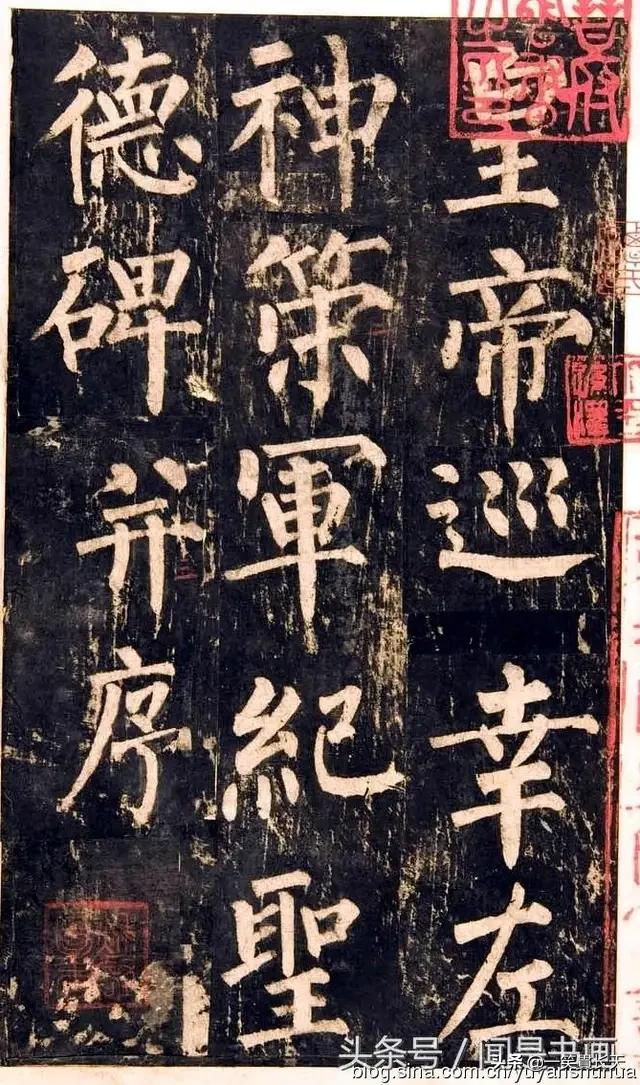 皇帝巡幸左
神策軍紀聖
德碑并序
头条号／闻是书画
头条
blog.sina.com.cn/yuyanshuhua